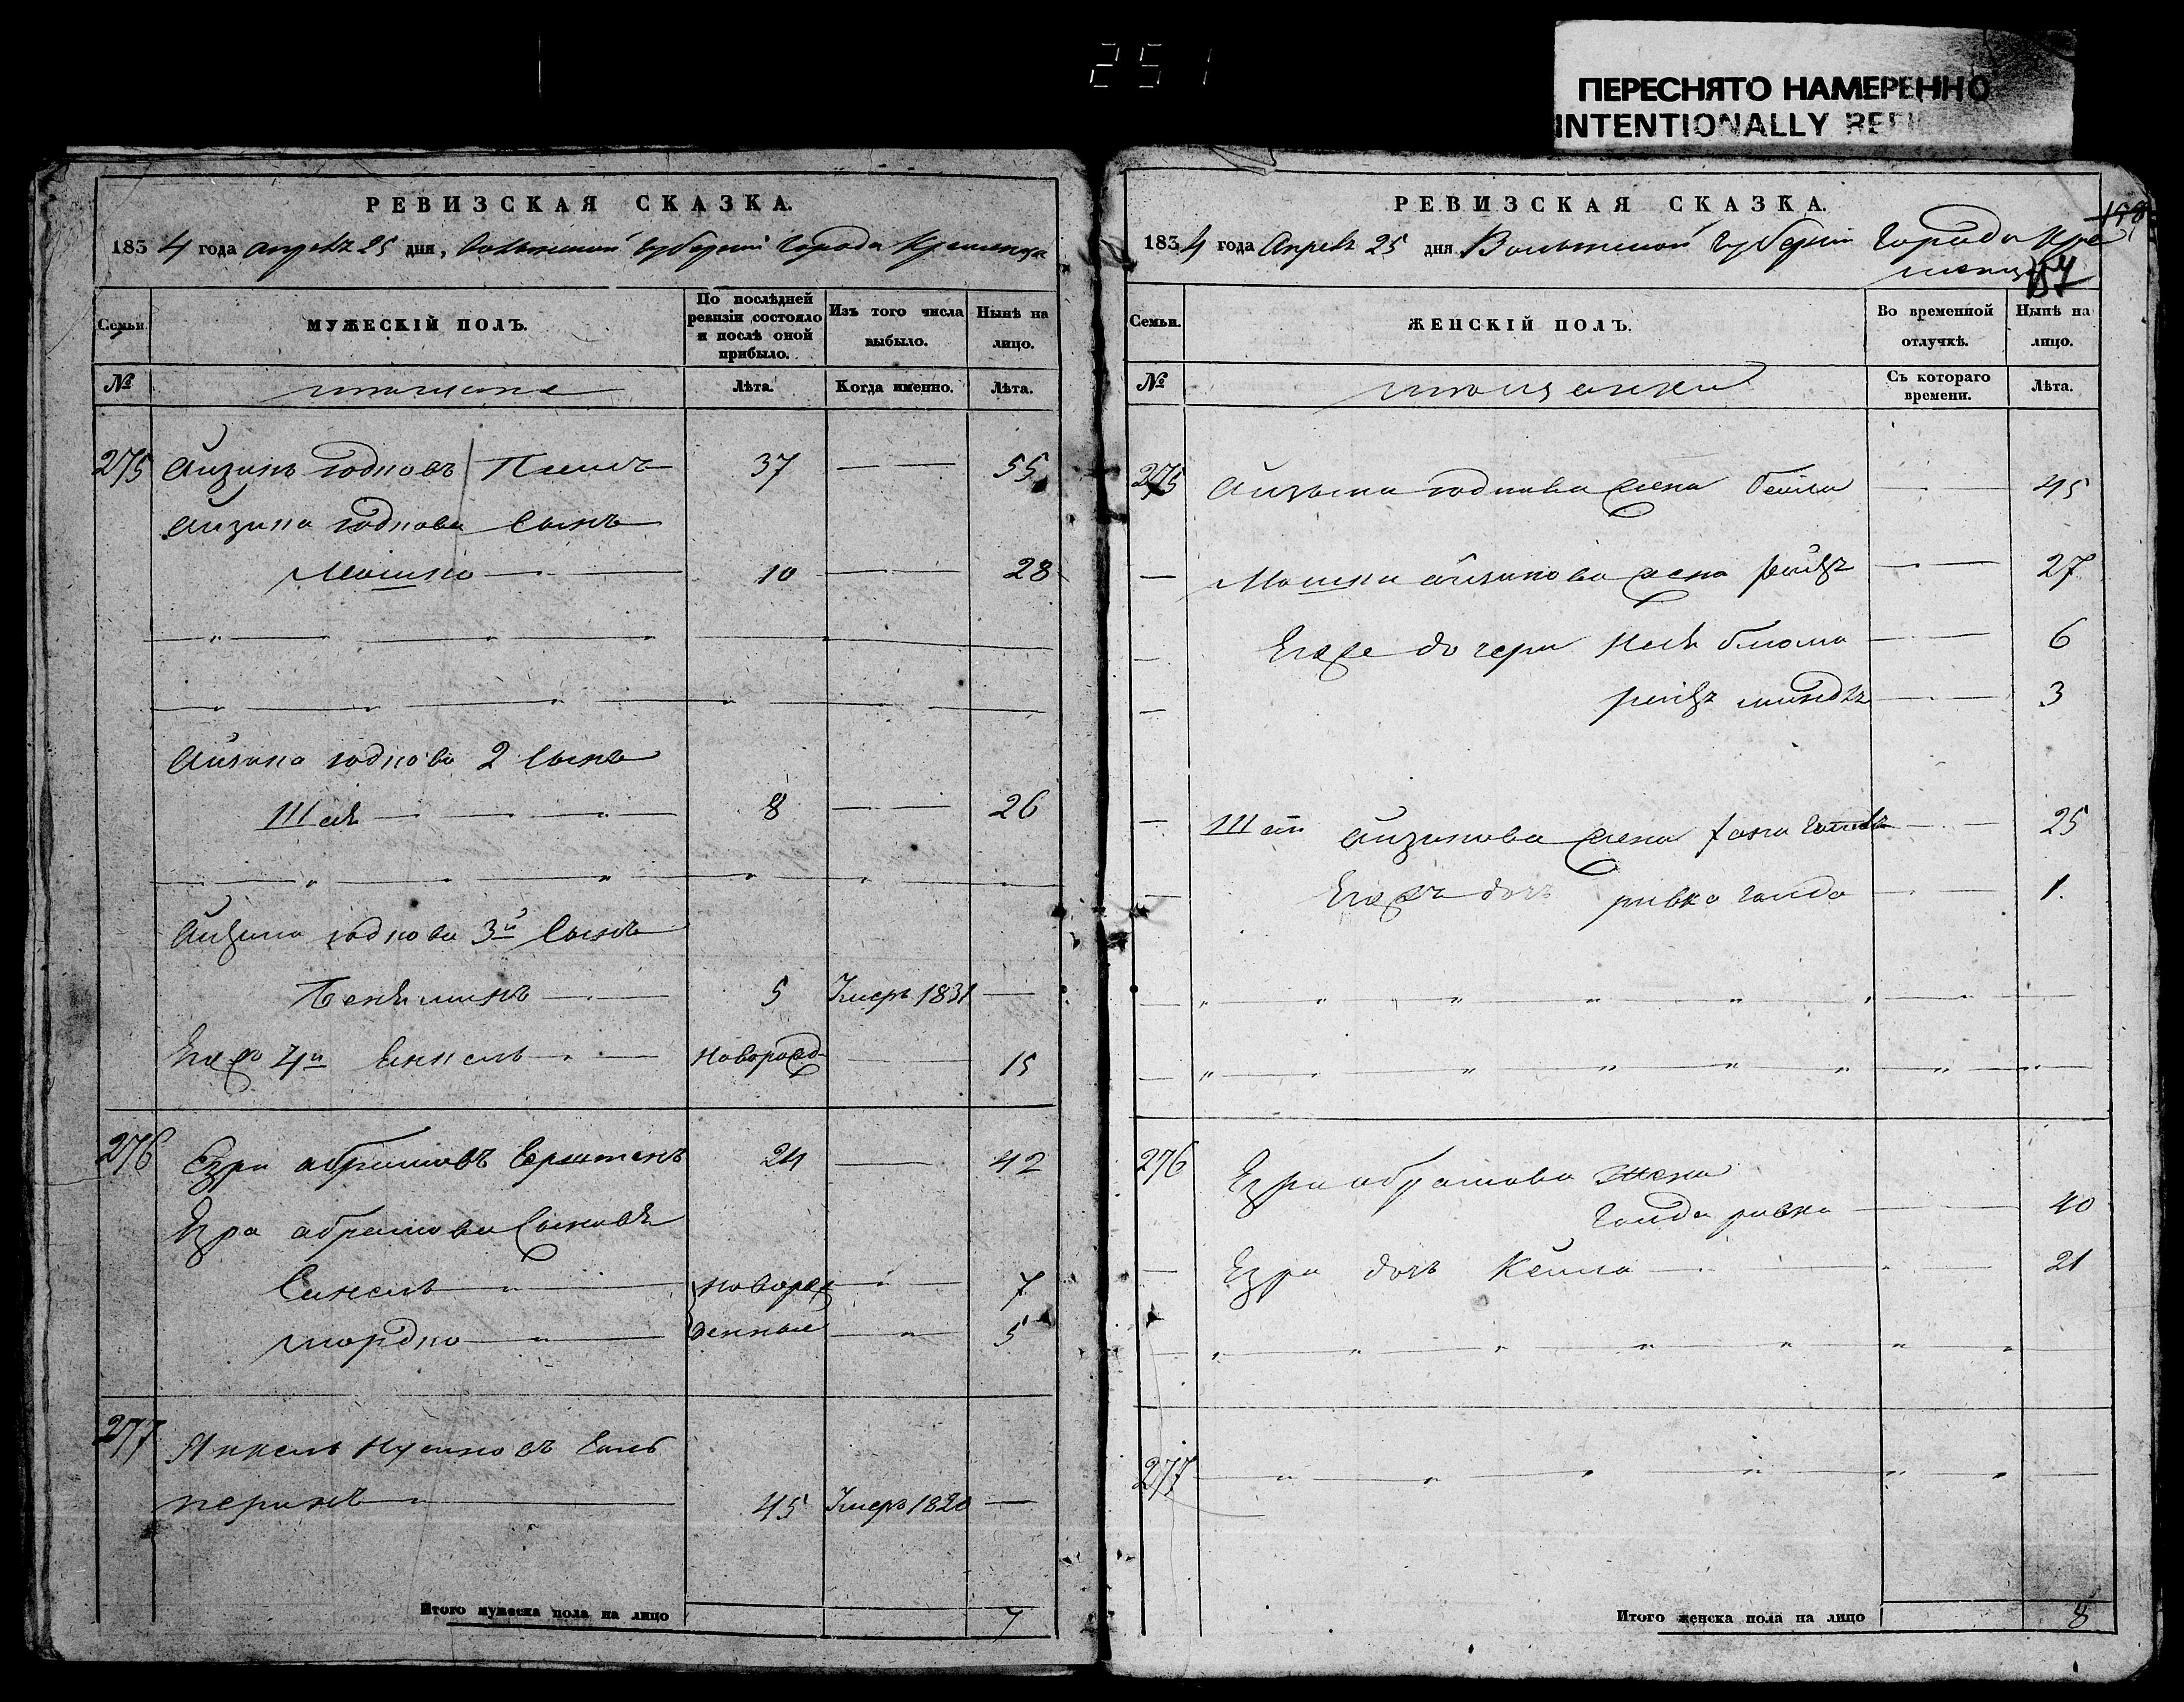 251
ПЕРЕСНЯТО НАМЕРЕННО
INTENTIONALLY REFI
РЕВИЗСКАЯ СКАЗКА.
1834 года апреля 25 дня, Волынской губернии города Кременца
Семьи.
МУЖЕСКІЙ ПОЛЪ.
По послѣдней ревизіи состояло и послѣ оной прибыло.
Изъ того числа выбыло.
Нынѣ на лицо.
№
мещане
Лѣта.
Когда именно.
Лѣта.
275 Айзикъ 37 55
Айзика сынъ
Мошко 10 28
Айзика 2 сынъ
Шая 8 26
Айзика 3й сынъ
Бенѣминъ 5 Умеръ 1831
Его же 4й новорожд 15
276 Езра абрамовъ 24 42
Езра абрамова сыновѣ
новорож 7
мордко денные 5
277 Янкель
45 Умеръ 1820
Итого мужеска пола на лицо 7
РЕВИЗСКАЯ СКАЗКА.
158
1834 года Апреля 25 дня Волынской губернии города Кре
менца
157
Семьи.
ЖЕНСКІЙ ПОЛЪ.
Во временной отлучкѣ.
Нынѣ на лицо.
№
мещанки
Съ котораго времени.
Лѣта.
275 Айзика жена Бейла 45
Мошки айзикова жена 27
Его же дочери 6
3
Шаи айзикова жена 25
Его же дочь ривка голда 1.
276 Езра абрамова жена
голда ривка 40
Езра дочь Кейла 21
277
Итого женска пола на лицо 8